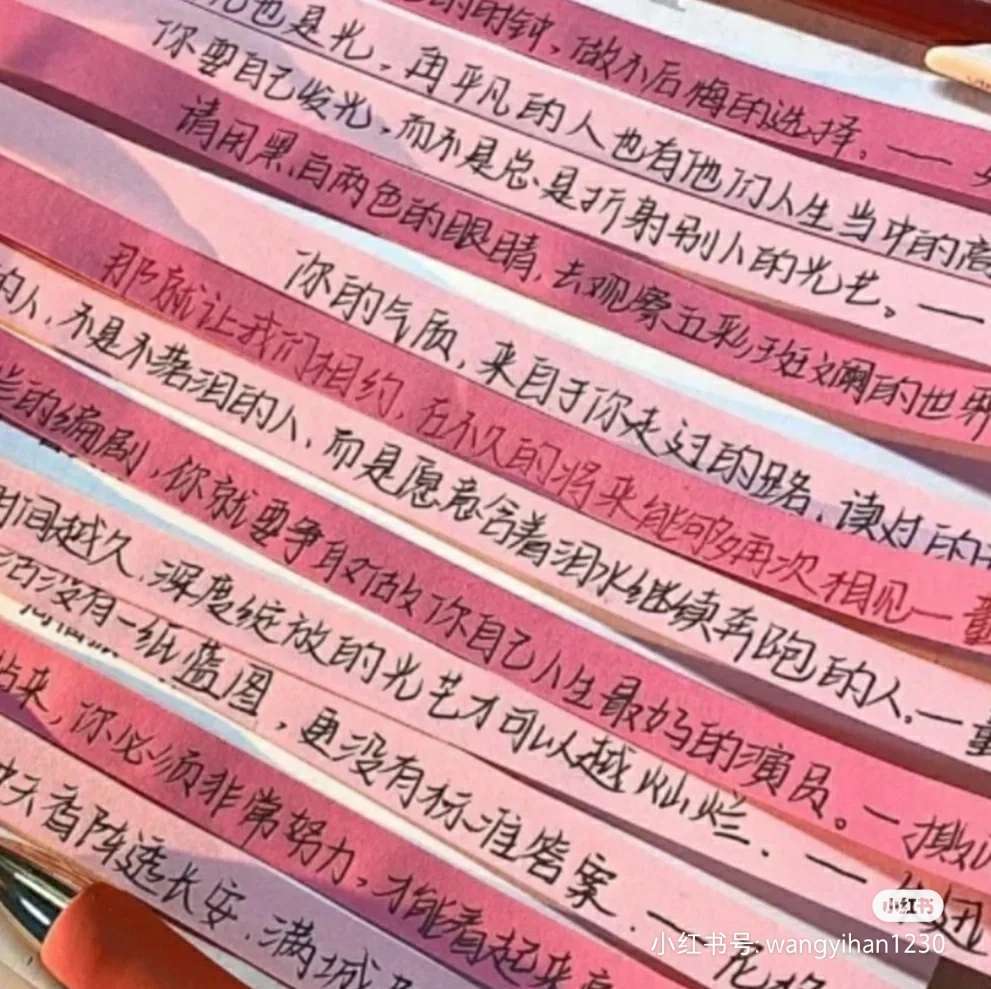 的时钟，做不后悔的选择。——
光也是光，再平凡的人也有他们人生当中的高
你要自己发光，而不是总是折射别人的光芒。——
请用黑白两色的眼睛，去观察五彩斑斓的世界
你的气质，来自于你走过的路，读过的
那就让我们相约，在不久的将来能够再次相见—董
的人，不是不落泪的人，而是愿意含着泪水继续奔跑的人。—董
能的编剧，你就要争取做你自己人生最好的演员。—撒
时间越久，深度绽放的光芒才可以越灿烂．——
活没有一纸蓝图，更没有标准答案．——
起来，你必须非常努力，才能看起来
冲天香阵透长安，满城
小红书
小红书号: wangyihan1230